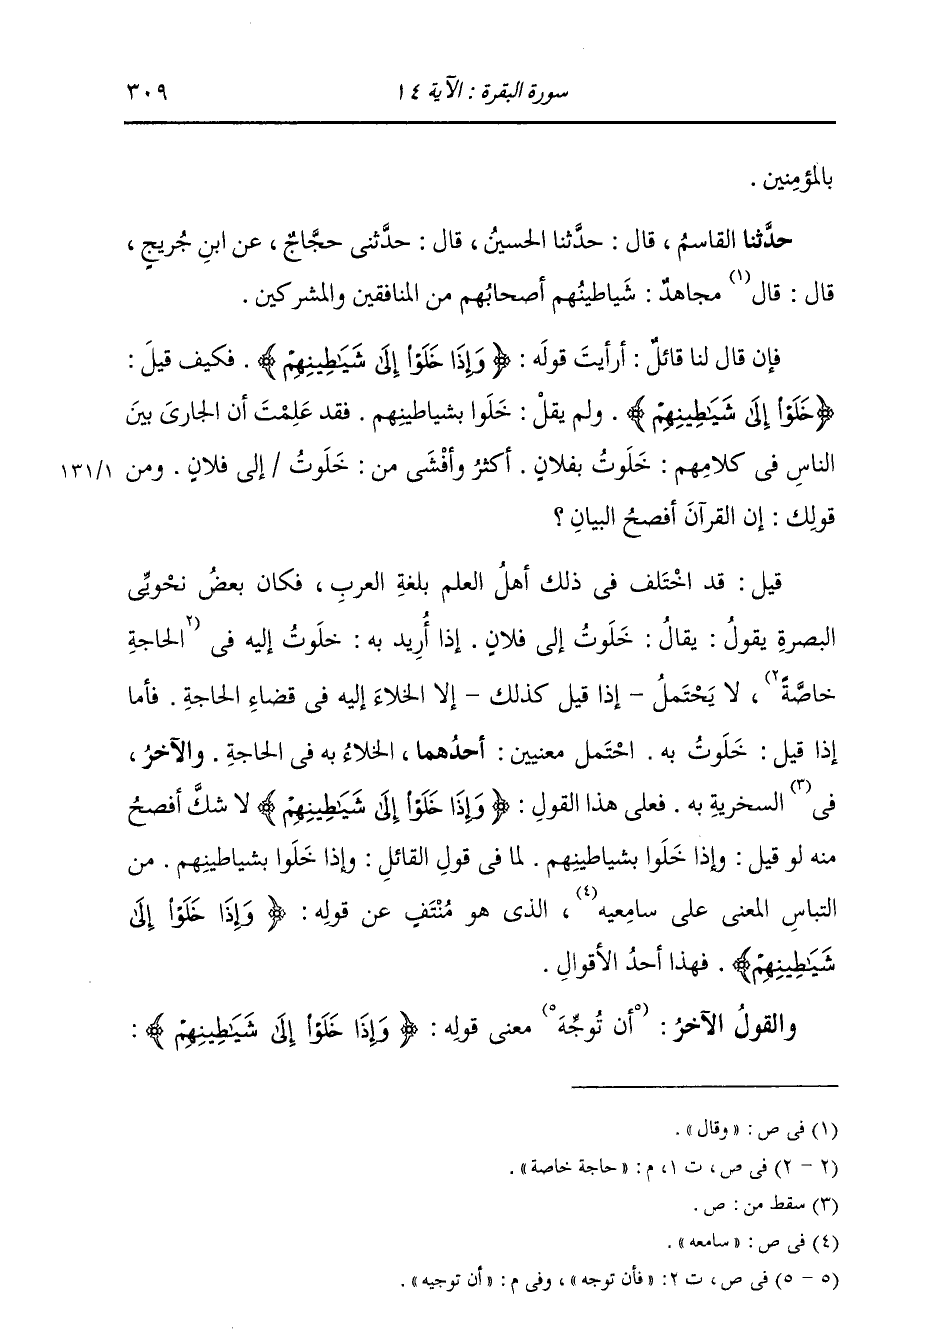 سورة البقرة : الآية ١٤ ٣٠٩
بالمؤمِنين .
حدَّثنا القاسمُ ، قال : حدَّثنا الحسينُ ، قال : حدَّثنى حجَّاجٌ ، عن ابنِ جُريجٍ ،
قال : قال(١) مجاهدٌ : شَياطينُهم أصحابُهم من المنافقين والمشركين .
فإن قال لنا قائلٌ : أرأيتَ قولَه : ﴿ وَإِذَا خَلَوْا۟ إِلَىٰ شَيَـٰطِينِهِمْ ﴾ . فكيف قيلَ :
﴿ خَلَوْا۟ إِلَىٰ شَيَـٰطِينِهِمْ ﴾ . ولم يقلْ : خَلَوا بشياطينِهم . فقد عَلِمْتَ أن الجارىَ بينَ
الناسِ فى كلامِهم : خَلَوتُ بفلانٍ . أكثرُ وأفْشَى من : خَلَوتُ / إلى فلانٍ . ومن ١٣١/١
قولِك : إن القرآنَ أفصحُ البيانِ ؟
قيل : قد اخْتَلف فى ذلك أهلُ العلم بلغةِ العربِ ، فكان بعضُ نحْويِّى
البصرةِ يقولُ : يقالُ : خَلَوتُ إلى فلانٍ . إذا أُرِيد به : خلَوتُ إليه فى (٢الحاجةِ
خاصَّةً٢) ، لا يَحْتَملُ - إذا قيل كذلك - إلا الخلاءَ إليه فى قضاءِ الحاجةِ . فأما
إذا قيل : خَلَوتُ به . احْتَمل معنيين : أحدُهما ، الخلاءُ به فى الحاجةِ . والآخرُ ،
فى(٣) السخريةِ به . فعلى هذا القولِ : ﴿ وَإِذَا خَلَوْا۟ إِلَىٰ شَيَـٰطِينِهِمْ ﴾ لا شكَّ أفصحُ
منه لو قيل : وإذا خَلَوا بشياطينِهم . لما فى قولِ القائلِ : وإذا خَلَوا بشياطينِهم . من
التباسِ المعنى على سامِعيه(٤) ، الذى هو مُنْتَفٍ عن قولِه : ﴿ وَإِذَا خَلَوْا۟ إِلَىٰ
شَيَـٰطِينِهِمْ ﴾ . فهذا أحدُ الأقوالِ .
والقولُ الآخرُ : (٥أن تُوجِّهَ٥) معنى قولِه : ﴿ وَإِذَا خَلَوْا۟ إِلَىٰ شَيَـٰطِينِهِمْ ﴾ :
(١) فى ص : « وقال » .
(٢ - ٢) فى ص ، ت ١، م : « حاجة خاصة » .
(٣) سقط من : ص .
(٤) فى ص : « سامعه » .
(٥ - ٥) فى ص ، ت ٢: « فأن توجه » ، وفى م : « أن توجيه » .